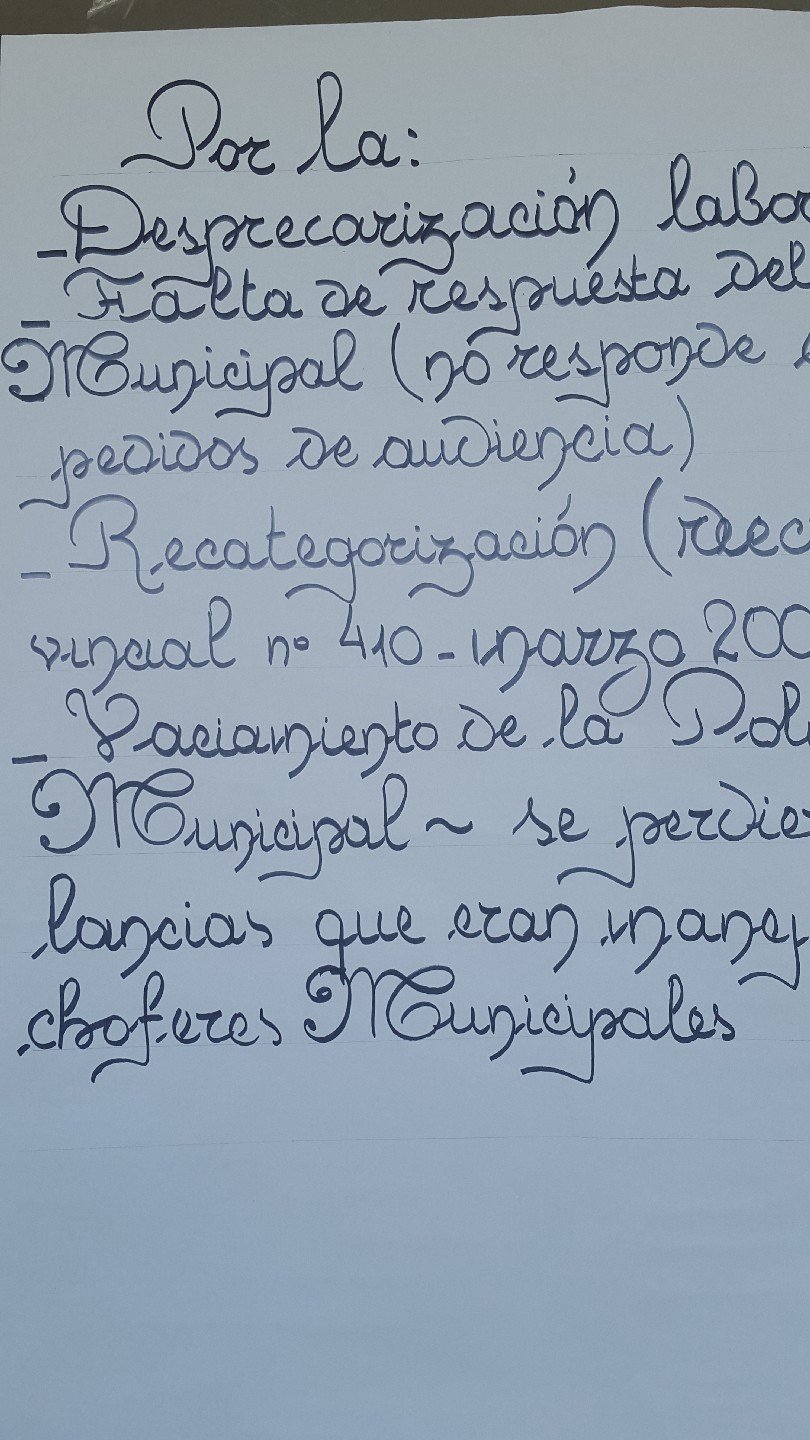 Por la:
- Desprecarización labor
- Falta de respuesta del
Municipal (no responde
pedidos de audiencia)
- Recategorización (reec
vincial nº 410 - marzo 200
- Vaciamiento de la Poli
Municipal ~ se perdie
lancias que eran manej
choferes Municipales